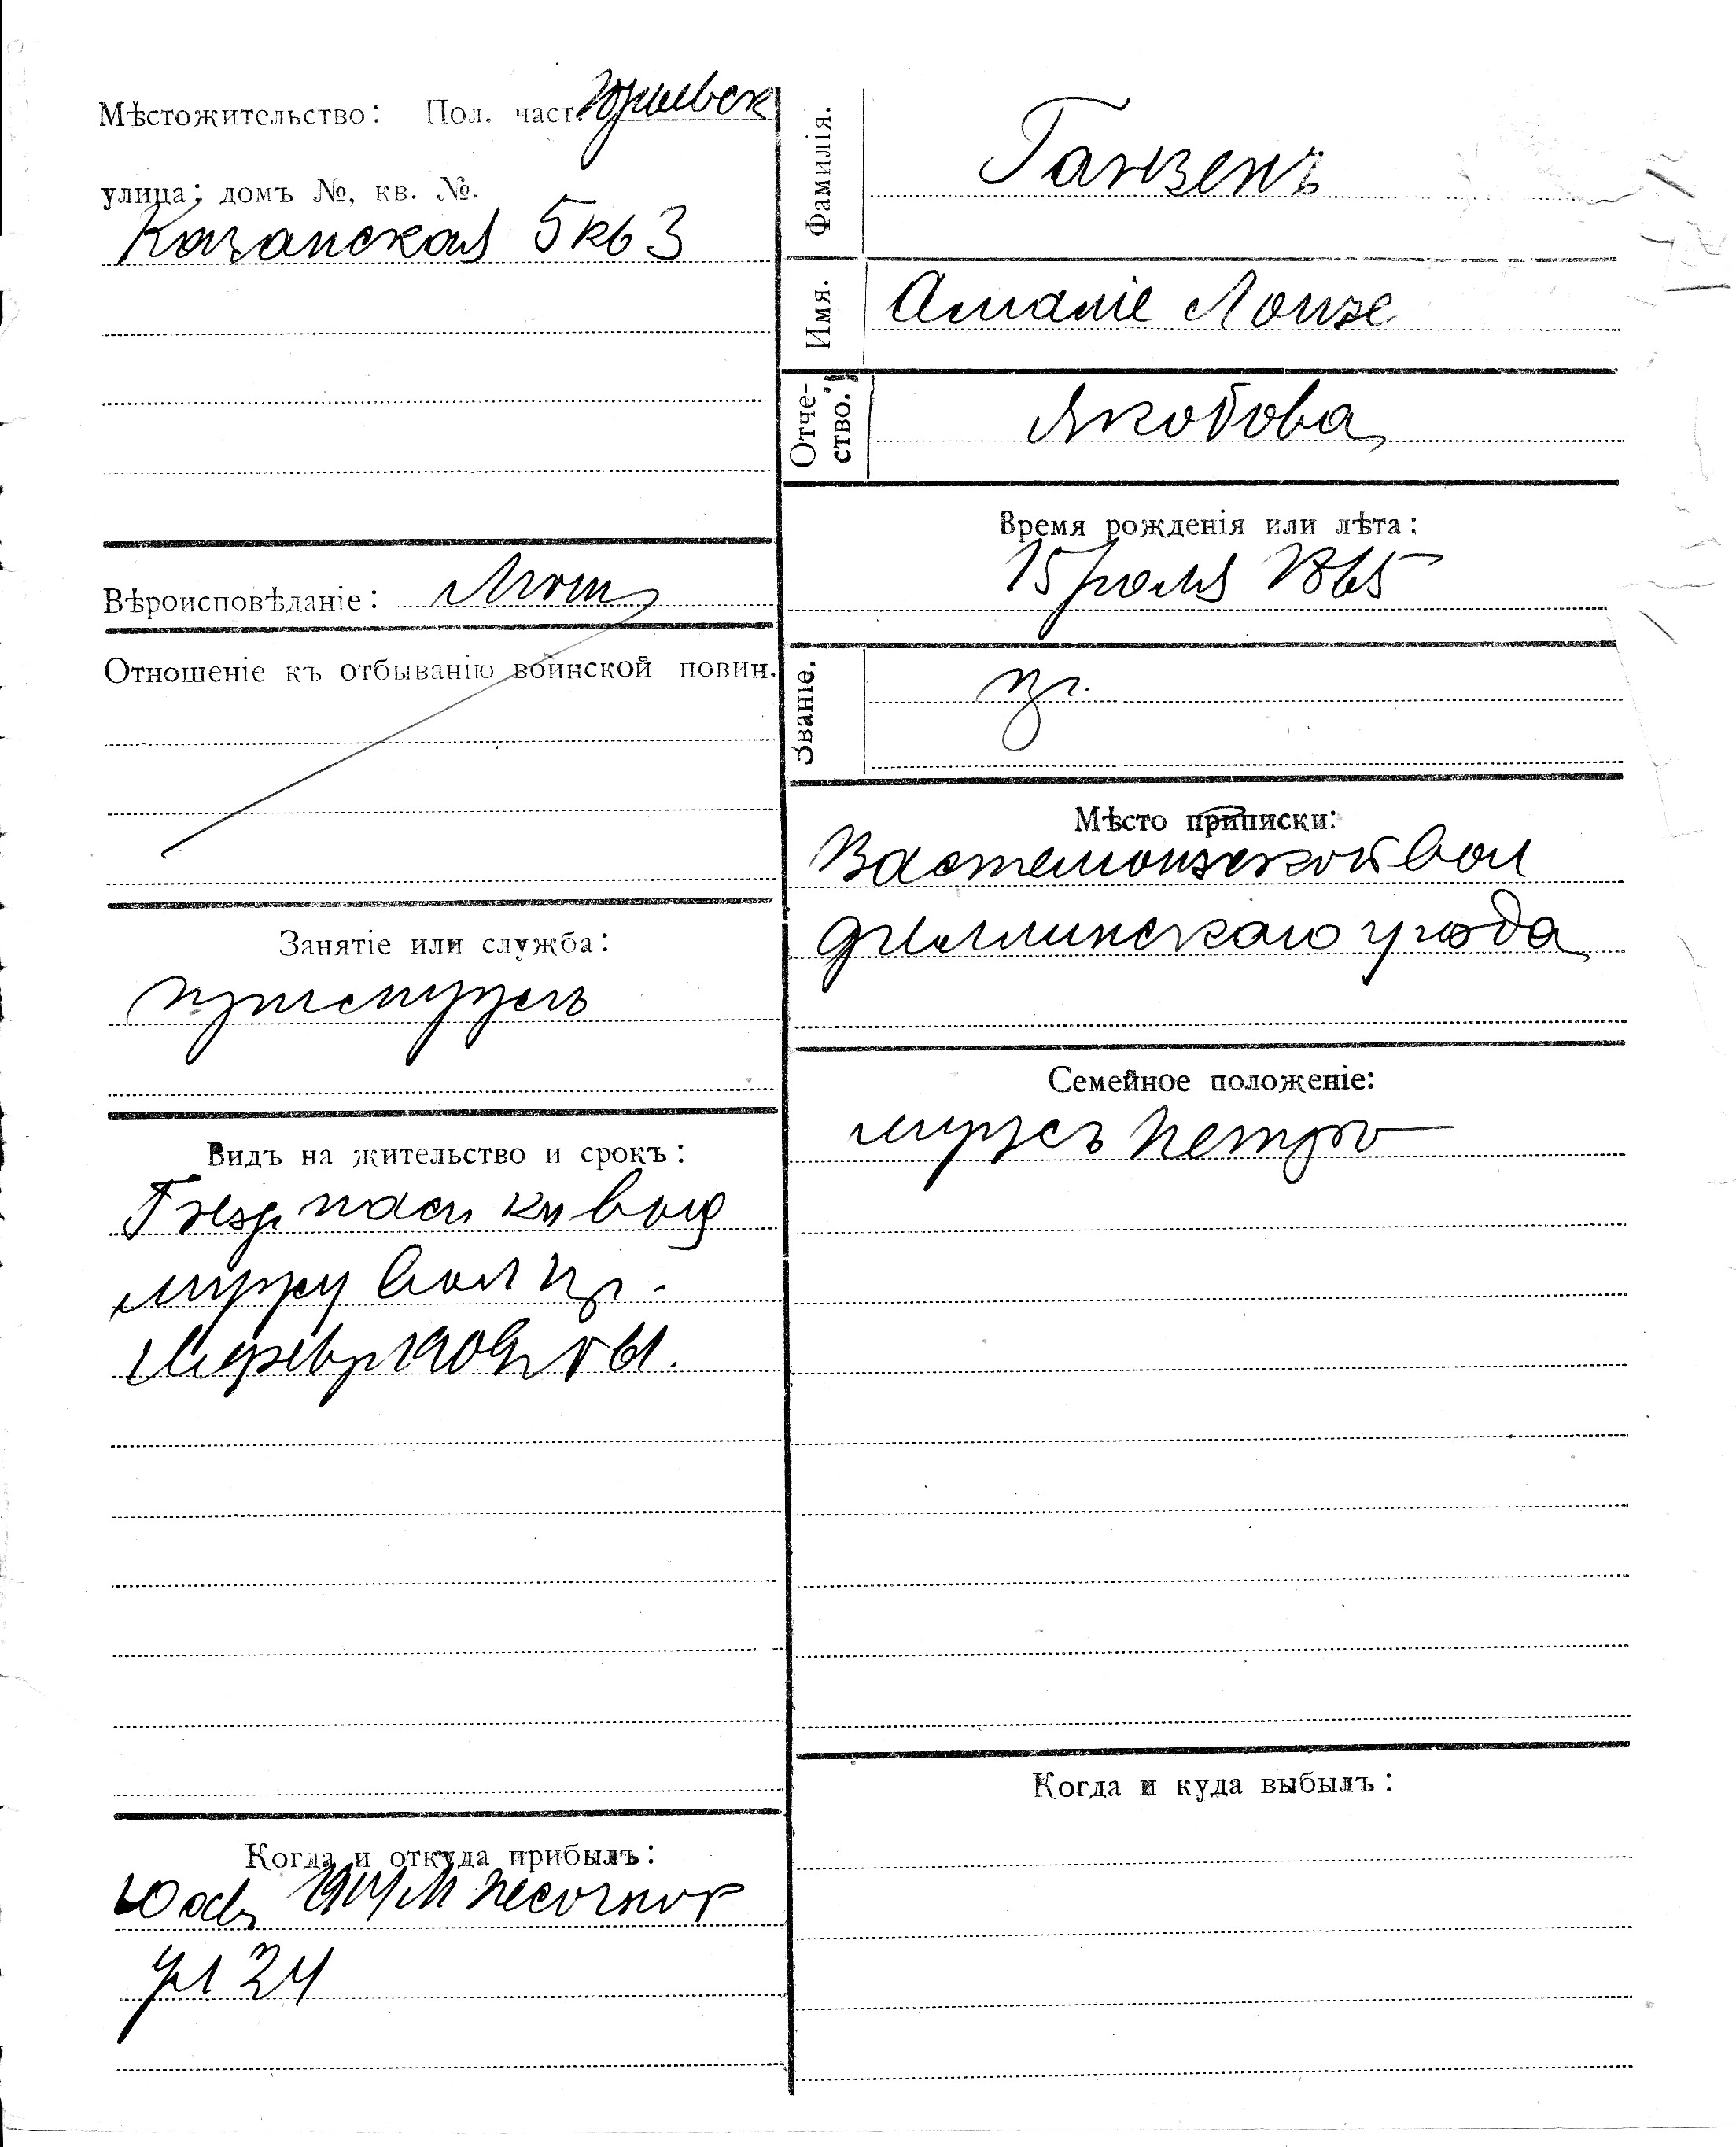 Мѣстожительство: Пол. част. Юрьевск
улица; домъ №, кв. №.
Казанская 5 кв 3
Вѣроисповѣданіе: Лют
Отношеніе къ отбыванію воинской повин.
Занятіе или служба:
при мужѣ
Видъ на жительство и срокъ:
пасп кн выд
мужу вол пр.
1909 г
Когда и откуда прибылъ:
10 авг Песочной
ул 24
Фамилія.
Ганзенъ
Имя.
Амаліе Лоизе
Отче-
ство.
Якобова
Время рожденія или лѣта:
15 іюля 1865
Званіе.
кр.
Мѣсто приписки:
Вастемоизской вол
Феллинскаго уѣзда
Семейное положеніе:
мужъ Петръ
Когда и куда выбылъ: